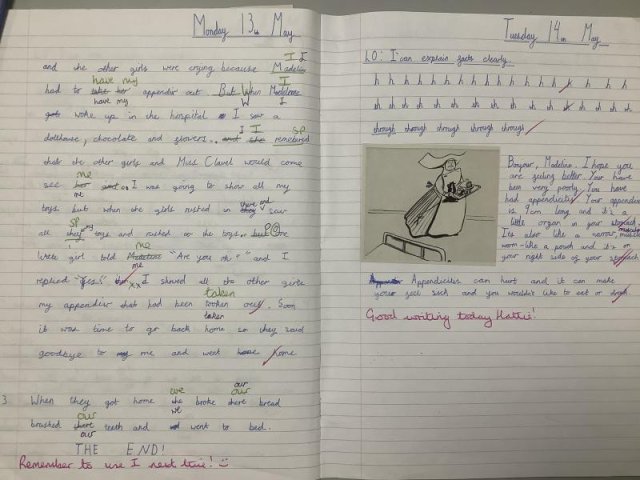 Monday 13th May
and the other girls were crying because Madeline I I
have my I
had to take her appendix out. But When Madeline
have my W I
got woke up in the hospital I saw a
I I sp
dollhouse, chocolate and flowers. and she remebered
that the other girls and Miss Clavel would come
me
see her and I was going to show all my
me
toys but when the girls rushed in they saw
there and
sp
all they toys and rushed to the toys but One
me
little girl told Madeline "Are you ok?" and I
me
replied "yes!" I showed all the other girls
taken
my appendix that had been tooken out. Soon
taken
it was time to go back home so they said
goodbye to my me and went home home
we our our
3 When they got home she broke there bread
our we
brushed there teeth and went to bed.
our
THE END!
Remember to use I next time!
Tuesday 14th May
LO: I can explain facts clearly.
h h h h h h h h h h h h h h h h
sh sh sh sh sh sh sh sh sh sh sh sh sh sh sh
through through through through through
Bonjour, Madeline. I hope you
are feeling better. You have
been very poorly. You have
had appendicitis. Your appendix
is 9cm long and it's a
little organ in your stomach.
It's also like a narrow, muscular
worm-like a pouch and it's on
your right side of your stomach
Appendicitis can hurt and it can make
you feel sick and you wouldn't like to eat or drink
Good writing today Hattie!